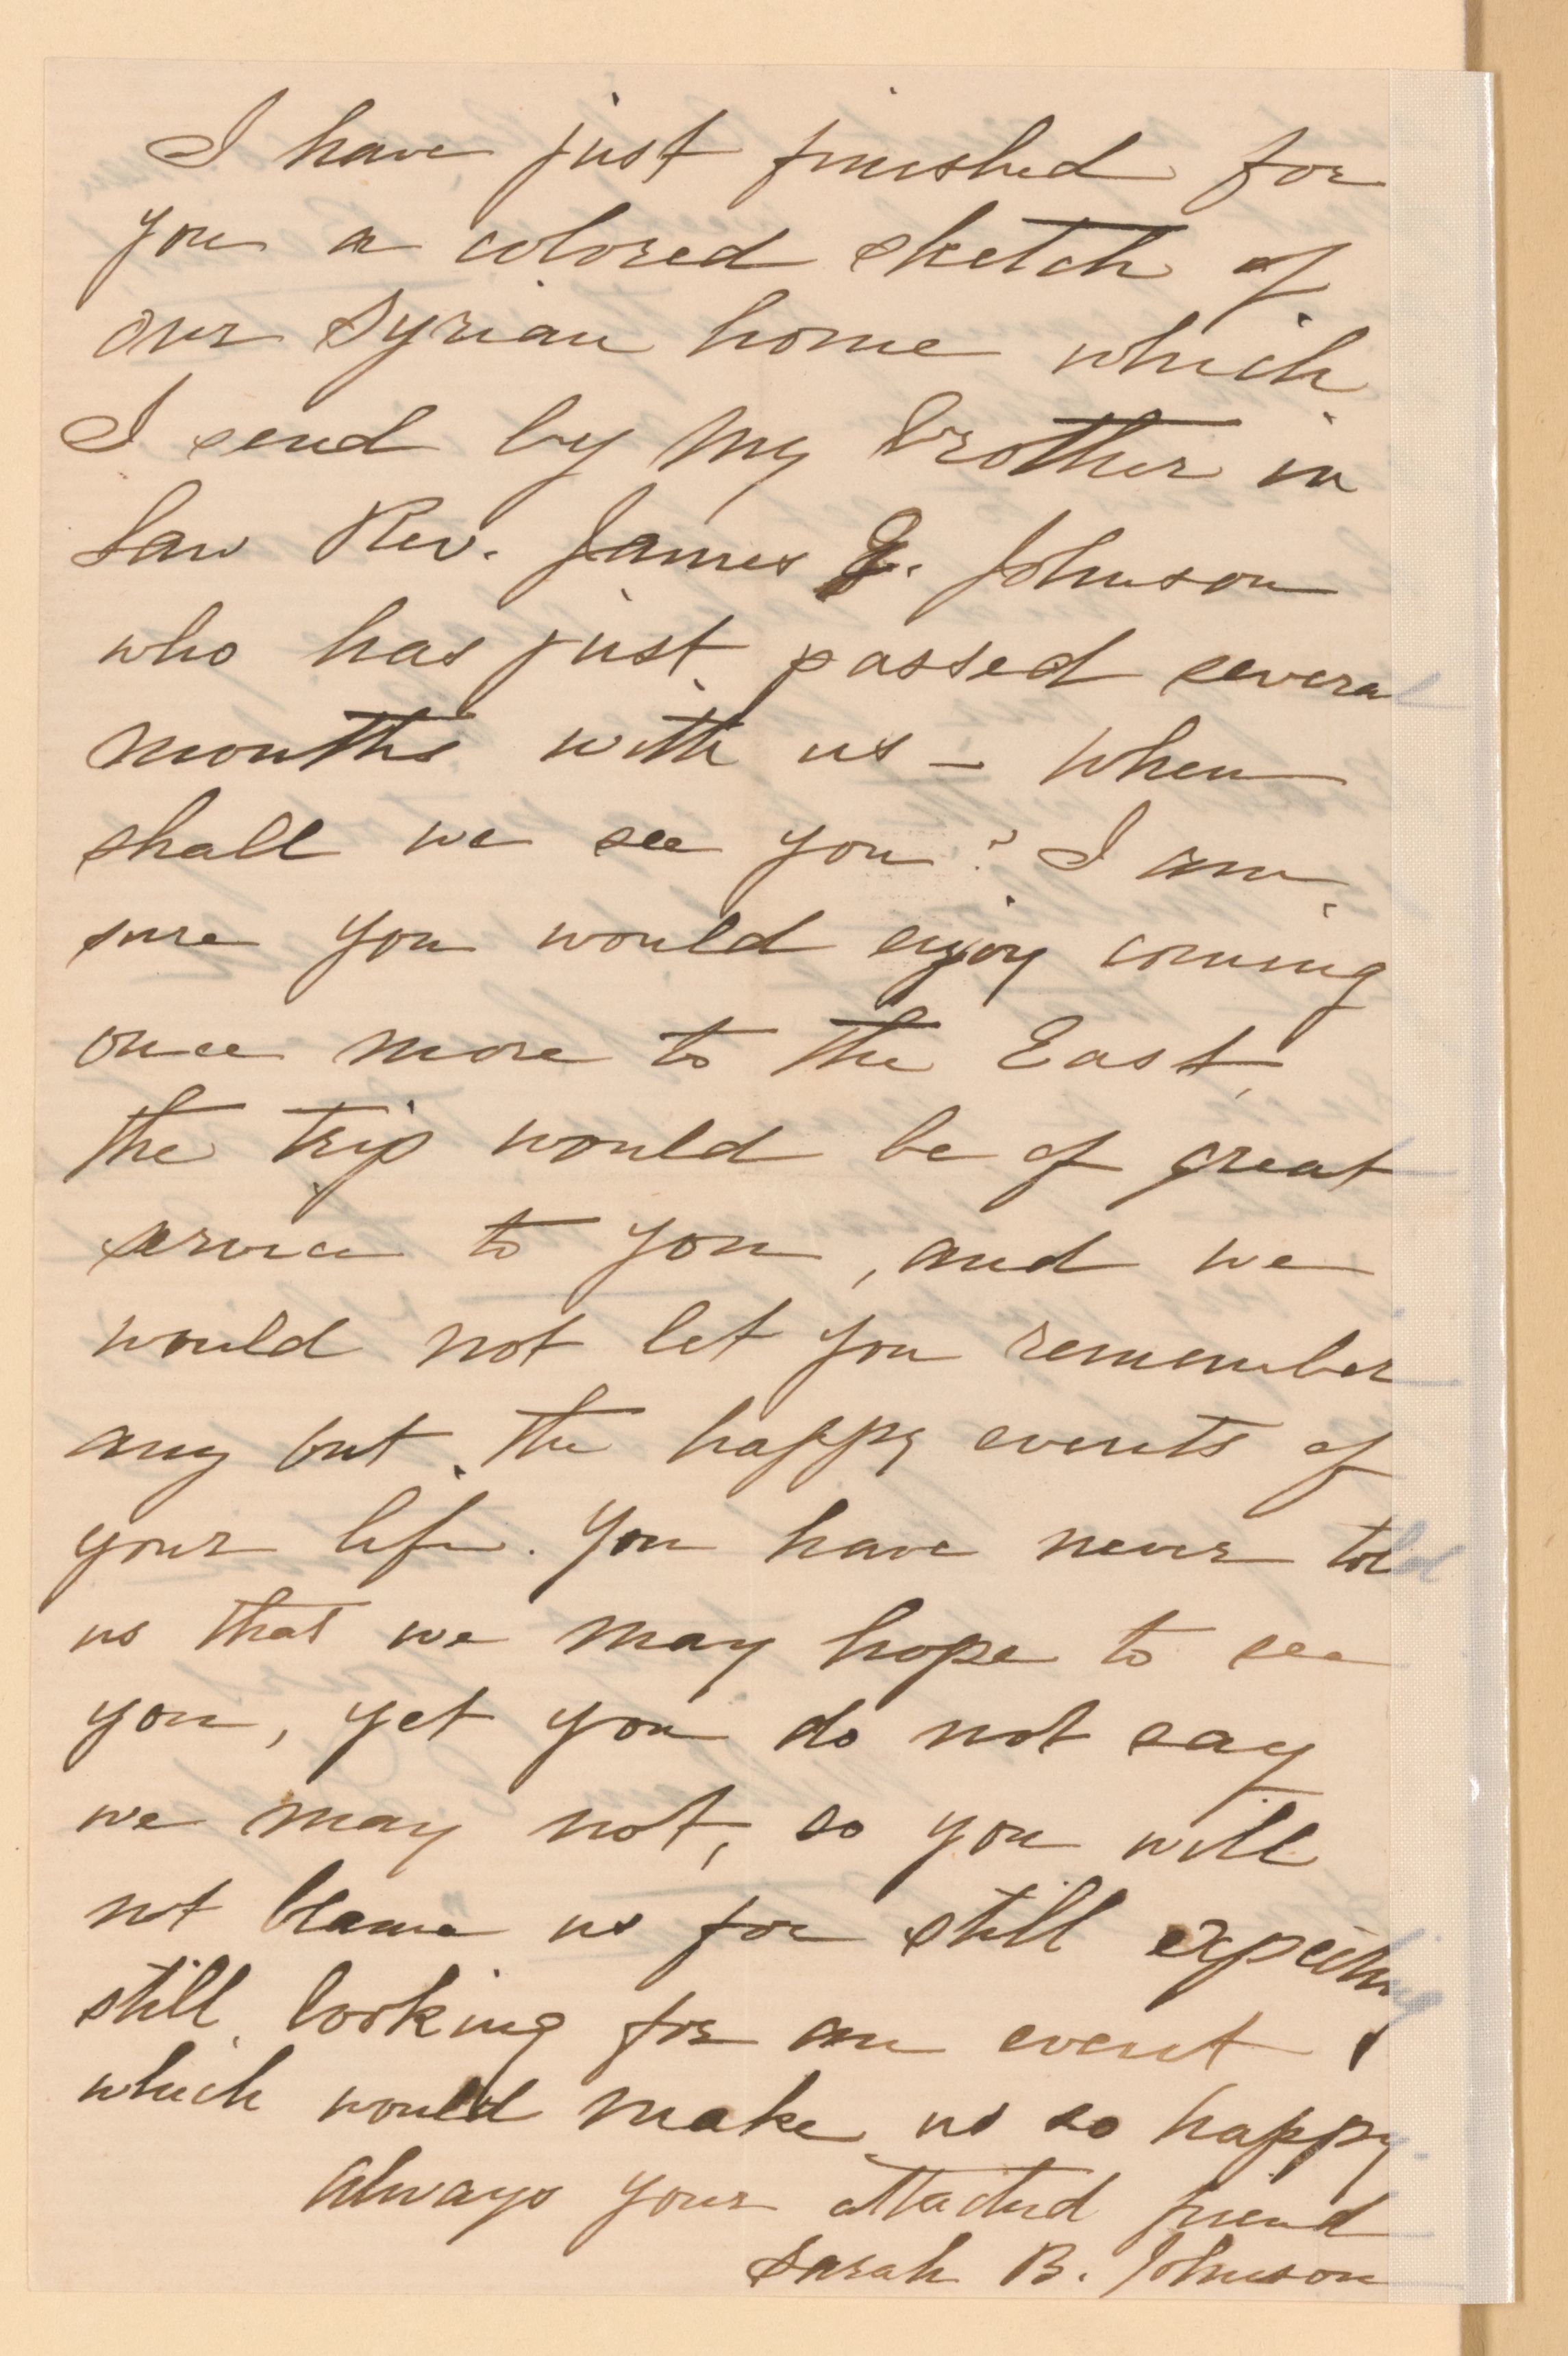 I have just finished for
you a colored sketch of
our Syrian home which
I send by my brother in
law Rev. James G. Johnson
who has just passed several
months with us – When
shall we see you? I am
sure you would enjoy coming
once more to the East,
the trip would be of great
service to you, and we
would not let you remember
any but the happy events of
your life. You have never told
us that we may hope to see
you, yet you do not say
we may not, so you will
not blame us for still expecting
still looking for an event
which would make us so happy.
Always your attached friend
Sarah B. Johnson